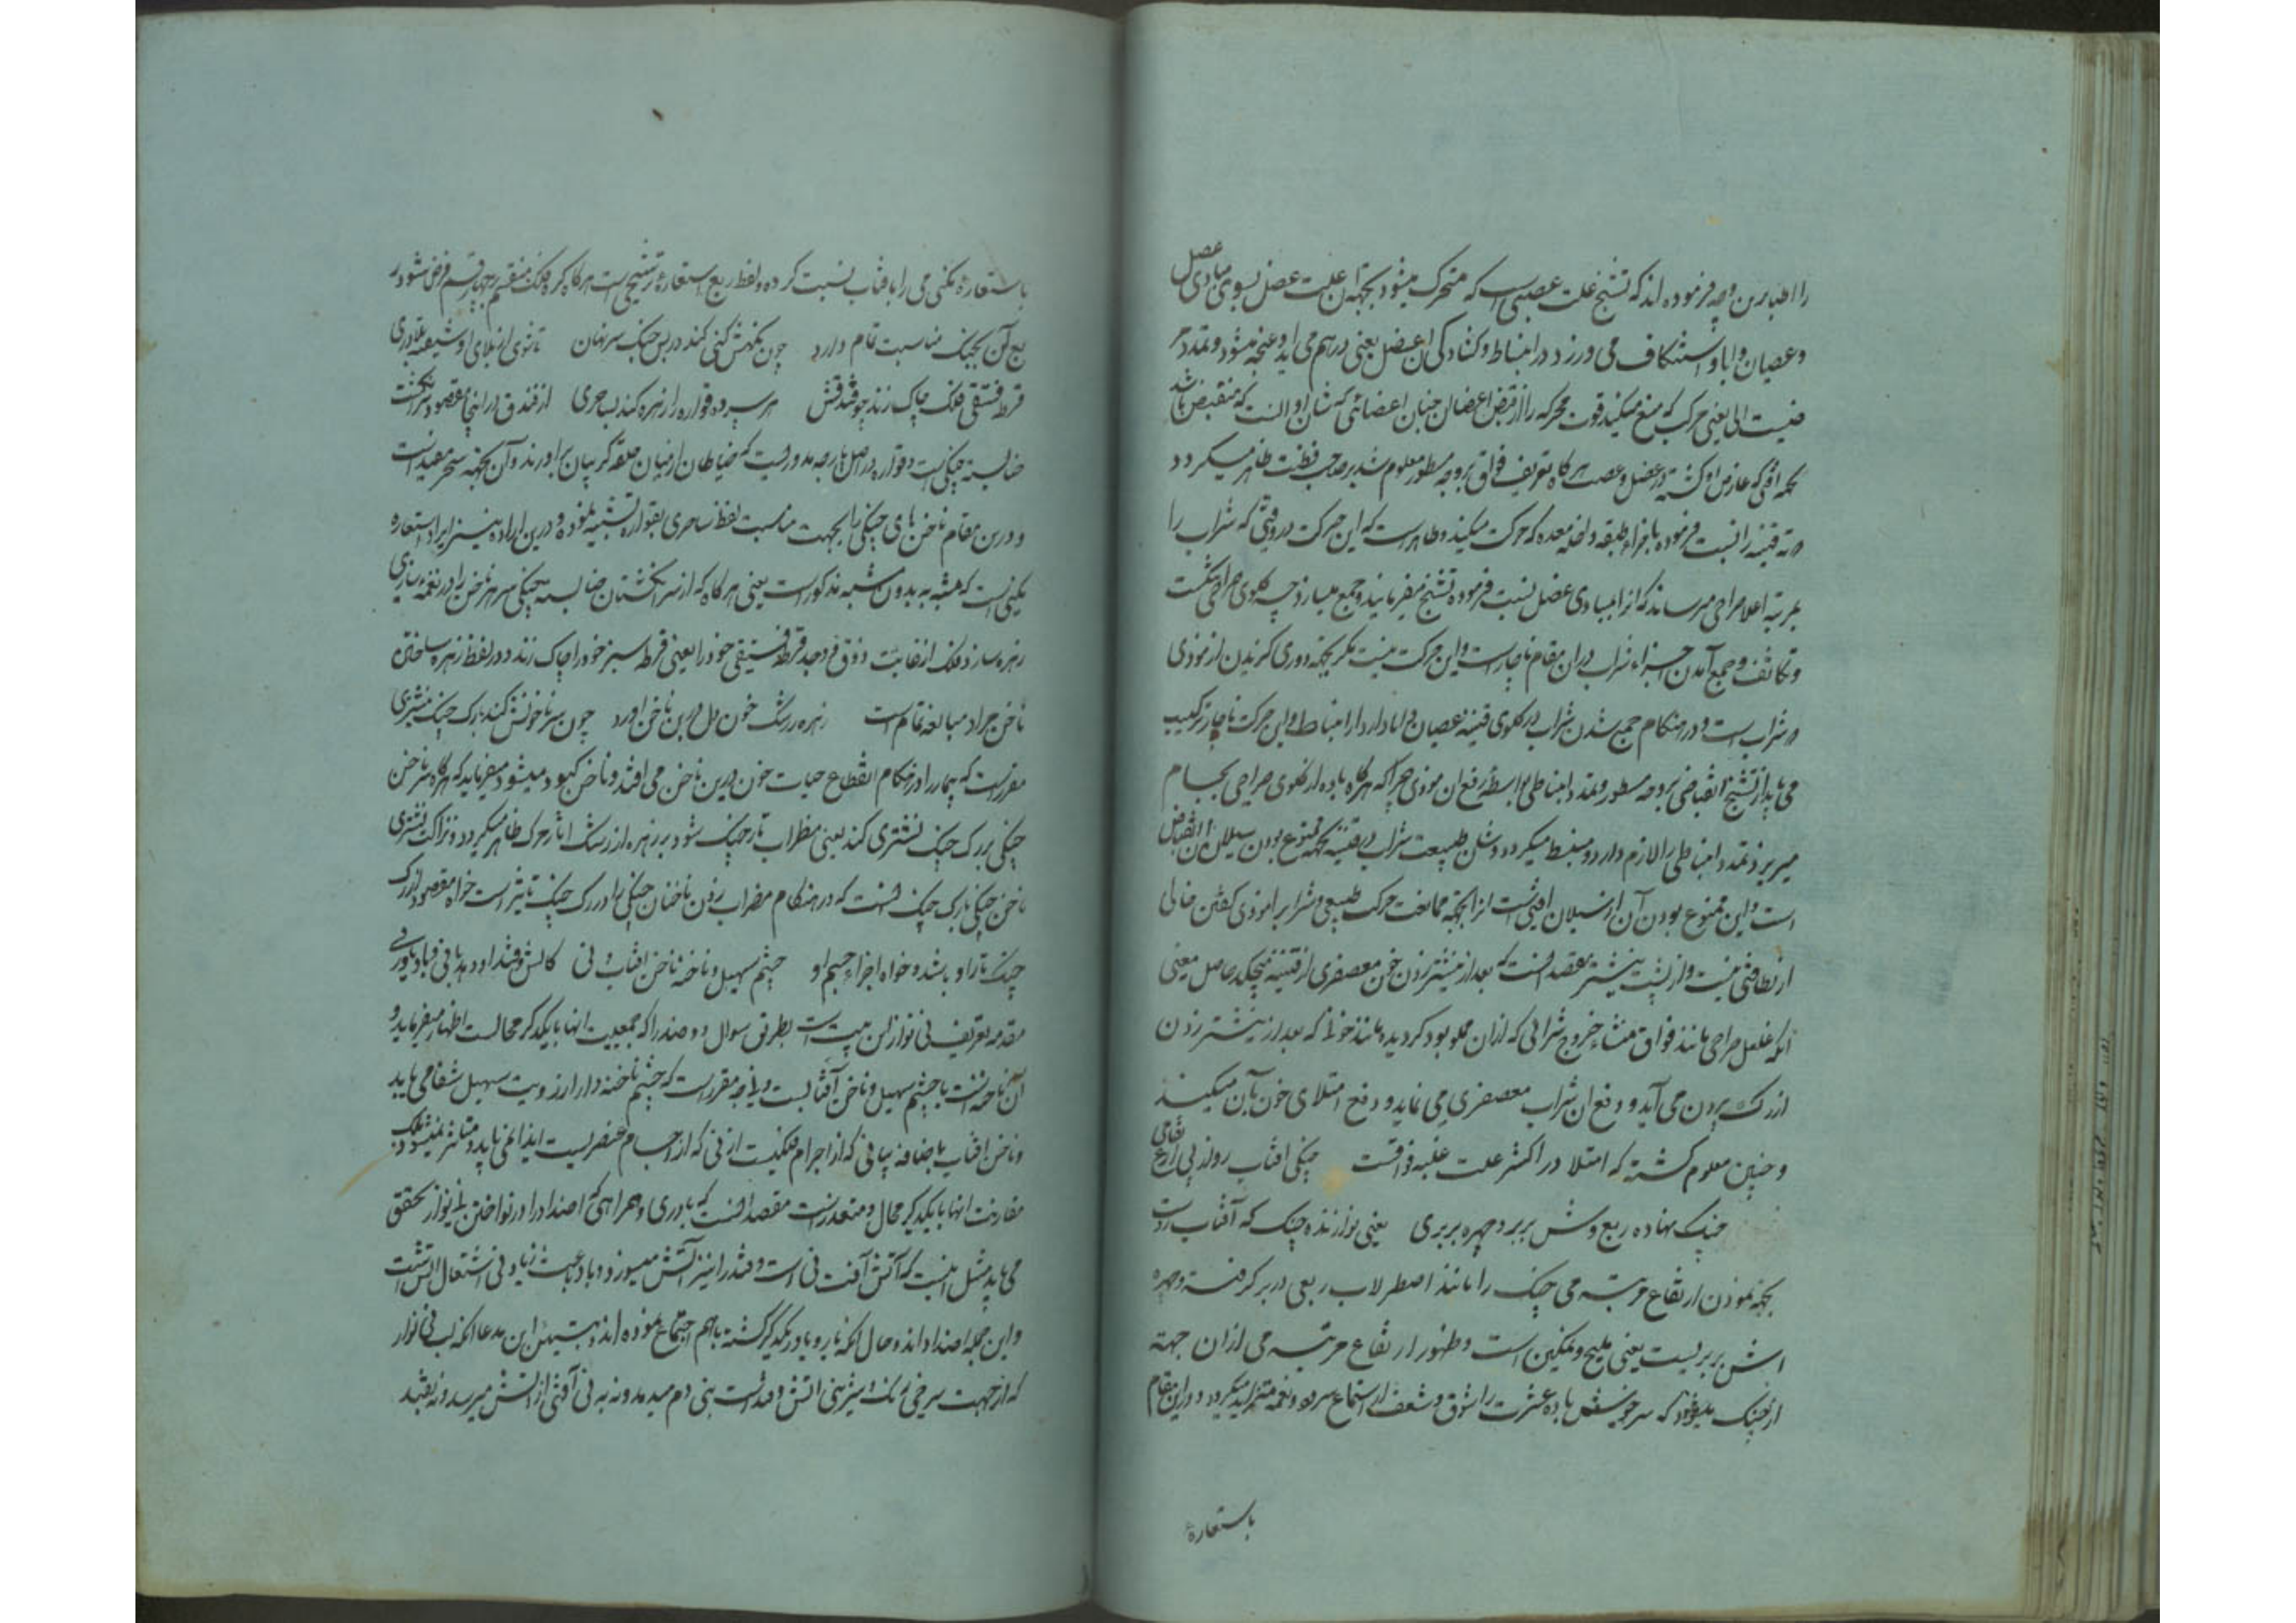 را اطبا برین وجه فرموده اند که تشنج علت عصبی است که متحرک میشود بجهة آن علت عضل بسوی مبادی عضل
و عصیان و ابا و استنکاف می ورزد در انبساط و کشادکی آن عضل یعنی درهم می آید و غنچه میشود و تمدد مر
ضیست آلی یعنی حرکت که منع میکند قوت محرکه را از قبض اعضا آن چنان اعضائی که شان او انست که منقبض باشد
بجهة آفتی که عارض او کشته در عضل و عصب هرکاه تعریف فواق بر وجه مسطور معلوم شد بر صاحب فطنت ظاهر میکردد
که قنینه را نسبت فرموده باجزاء طبقه داخله معده که حرکت میکند و ظاهر است که این حرکت در وقتی که شراب را
بمرتبه اعلا صراحی میرساند که انرا بمبادی عضل نسبت فرموده تشنج میفرمایند و جمع میسازد چه کلوی صراحی تنکست
و تکاثف و جمع آمدن اجزاء شراب دران مقام ناچار است و این حرکت نیست مکر بجهة دوری کزیدن از موذی
که شراب است و در هنکام جمع شدن شراب در کلوی قنینه عصیان و ابا دارد از انبساط و این حرکت ناچار ترکیب
می یابد از تشنج انقباضی بر وجه مسطور و تمدد انبساطی بواسطه رفع آن موذی چرا که هرکاه باده از کلوی صراحی بجام
میریزد تمدد انبساطی را لازم دارد و منبسط میکردد و شان طبیعت شراب در قنینه بجهة ممنوع بودن سیلان آن انقباض
است و این ممنوع بودن آن از سیلان آفتیست از انجهة ممانعت حرکت طبیعی و شراب را موذی کفتن خالی
از لطافتی نیست و از بیت پیشتر مقصد انست که بعد از نیشتر زدن خون معصفری از قنینه میچکد حاصل معنی
آنکه غلغل صراحی مانند فواق منشاء خروج شرابی که ازان مملو بود کردیده مانند خونی که بعد از نیشتر زدن
از رک بیرون می آید و دفع ان شراب معصفری می نماید و دفع امتلای خون بآن میکند
و چنین معلوم کشته که امتلا در اکثر علت غلبه فواقست چنکی آفتاب رو از پی ارتفاع می
چنک نهاده ربع وش بر بر و چهره بربری یعنی نوازنده چنک که آفتاب روست
بجهة نمودن ارتفاع مرتبه می چنک را مانند اصطرلاب ربعی در بر کرفته و چهره
اش بربریست یعنی ملیح و نمکین است و ظهور ارتفاع مرتبه می ازان جهة
از چنک میشود که سرخوش باده عشرت را شوق و شعف از استماع سرود و نغمه متزاید میکردد و درین مقام
باستعارهٔ
باستعارهٔ مکنی می را بآفتاب نسبت کرده و لفظ ربع استعارهٔ ترشیحی است هرکاه کره فلک منقسم بچهار قسم فرض شود
ربع آن بچنک مناسبت تمام دارد چون نکهش کنی کند در پس چنک سر نهان تا نشوی ز بلای او شیفته بلادری
قرطه فستقی فلک چاک زند چو فندقش هر سر ده قواره را زهره کند بساحری از فندق در اینجا مقصود سر انکشت
خنا بسته چنکی است و قواره در اصل پارچه مدوریست که خیاطان از میان حلقه کریبان براورند و آن بجهة سحر مفیدست
و درین مقام ناخن های چنکی را بجهت مناسبت لفظ ساحری بقواره تشبیه نموده و درین اراده نیز ایراد استعاره
مکنی است که مشبه به بدون مشبه مذکور است یعنی هرکاه که از سر انکشتان حنا بسته چنکی سر هر ناخن را در نغمه سازی
زهره سازد فلک از غایت ذوق و وجد قرطه فستقی خود را یعنی قرطه سبز خود را چاک زند و در لفظ زهره ساختن
ناخن جراد مبالغه تمام است زهره ز رشک خون دل در بن ناخن اورد چون سر ناخنش کند با رک چنک نشتری
مقرر است که بیمار را در هنکام انقطاع حیات خون در بن ناخن می افتد و ناخن کبود میشود میفرماید که هرکاه سر ناخن
چنکی بر رک چنک نشتری کند یعنی مضراب تار چنک شود بر زهره از رشک آثار مرک ظاهر میکردد و نزاکت نشتری
ناخن چنکی با رک چنک انست که در هنکام مضراب زدن ناخنان چنکی را در رک چنک تاثیر است خواه مقصود از رک
چنک تار او باشد و خواه اجزاء جسم او چشم سهیل و ناخنه ناخن آفتاب و نی کاتش و قند او دهد با نی و باد یاوری
مقدمه تعریف نی نواز این بیت است بطریق سوال دو ضد را که جمعیت انها با یکدکر محالست اظهار میفرماید و
آن ناخنه است با چشم سهیل و ناخن آفتابست و نی چه مقرر است که چشم ناخنه دار از رویت سهیل شفا می یابد
و ناخن آفتاب باضافه بیانی که از اجرام فلکیست از نی که از اجسام عنصریست ایذا نمی یابد و متاثر نمیشود بلکه
مقارنت انها با یکدیکر محال و متعذر است مقصد انست که یاوری و همراهی که اضداد را در نواختن نی نواز تحقق
می یابد مثل اینست که آتش آفت نی است و قند را نیز آتش میسوزد و باد باعث زیادتی اشتعال آتش است
و این جمله اضداد اند و حال انکه یار و یاور یکدیکر کشته باهم اجتماع نموده اند و تبیین این مدعا انکه لب نی نواز
که از جهت سرخی رنک و شیرینی آتش و قند است بنی دم میدمد و نه به نی آفتی از آتش میرسد و نه بقند